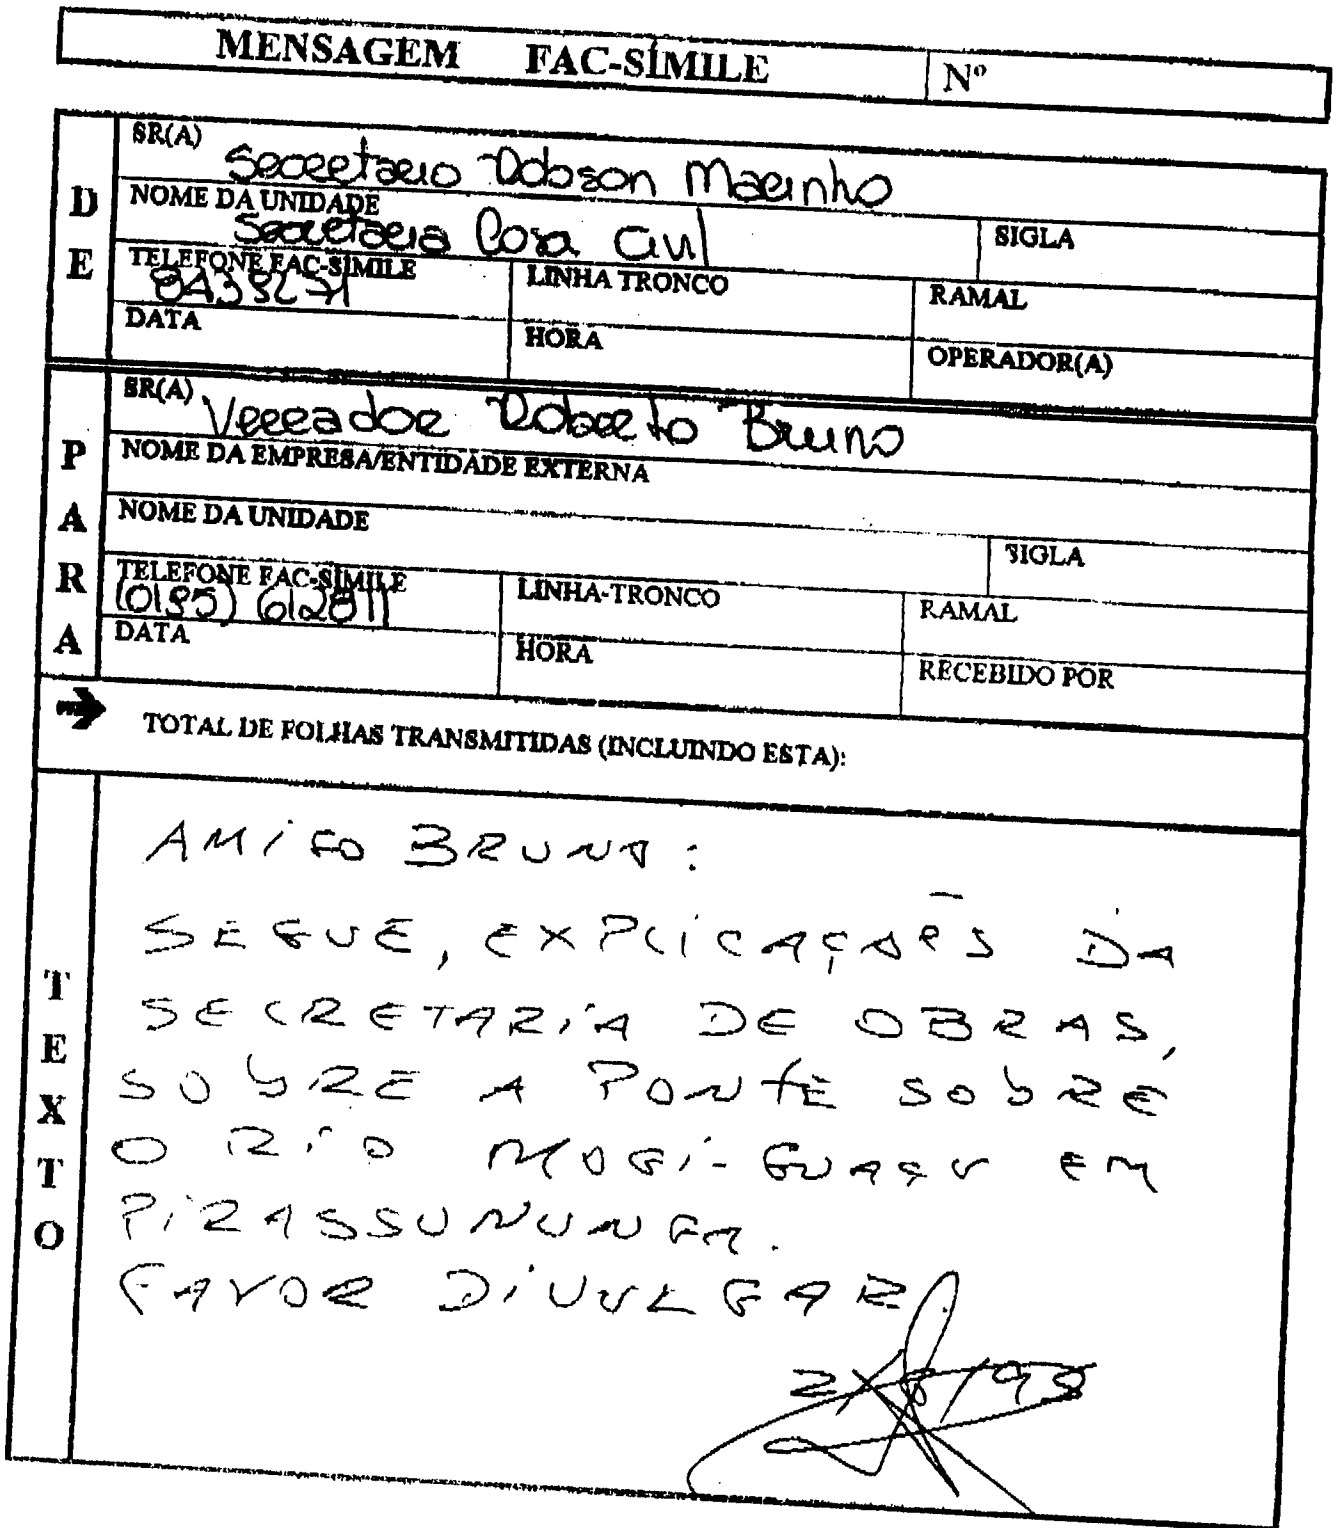 MENSAGEM FAC-SÍMILE Nº
DE
SR(A) Secretario Robson Marinho
NOME DA UNIDADE Secretaria Casa Civil
SIGLA
TELEFONE FAC-SÍMILE
LINHA TRONCO
RAMAL
DATA
HORA
OPERADOR(A)
PARA
SR(A) Vereador Roberto Bruno
NOME DA EMPRESA/ENTIDADE EXTERNA
NOME DA UNIDADE
SIGLA
TELEFONE FAC-SÍMILE (0195) 612811
LINHA-TRONCO
RAMAL
DATA
HORA
RECEBIDO POR
TOTAL DE FOLHAS TRANSMITIDAS (INCLUINDO ESTA):
TEXTO
AMIGO BRUNO:
SEGUE, EXPLICAÇÕES DA
SECRETARIA DE OBRAS,
SOBRE A PONTE SOBRE
O RIO MOGI-GUAÇU EM
PIRASSUNUNGA.
FAVOR DIVULGAR